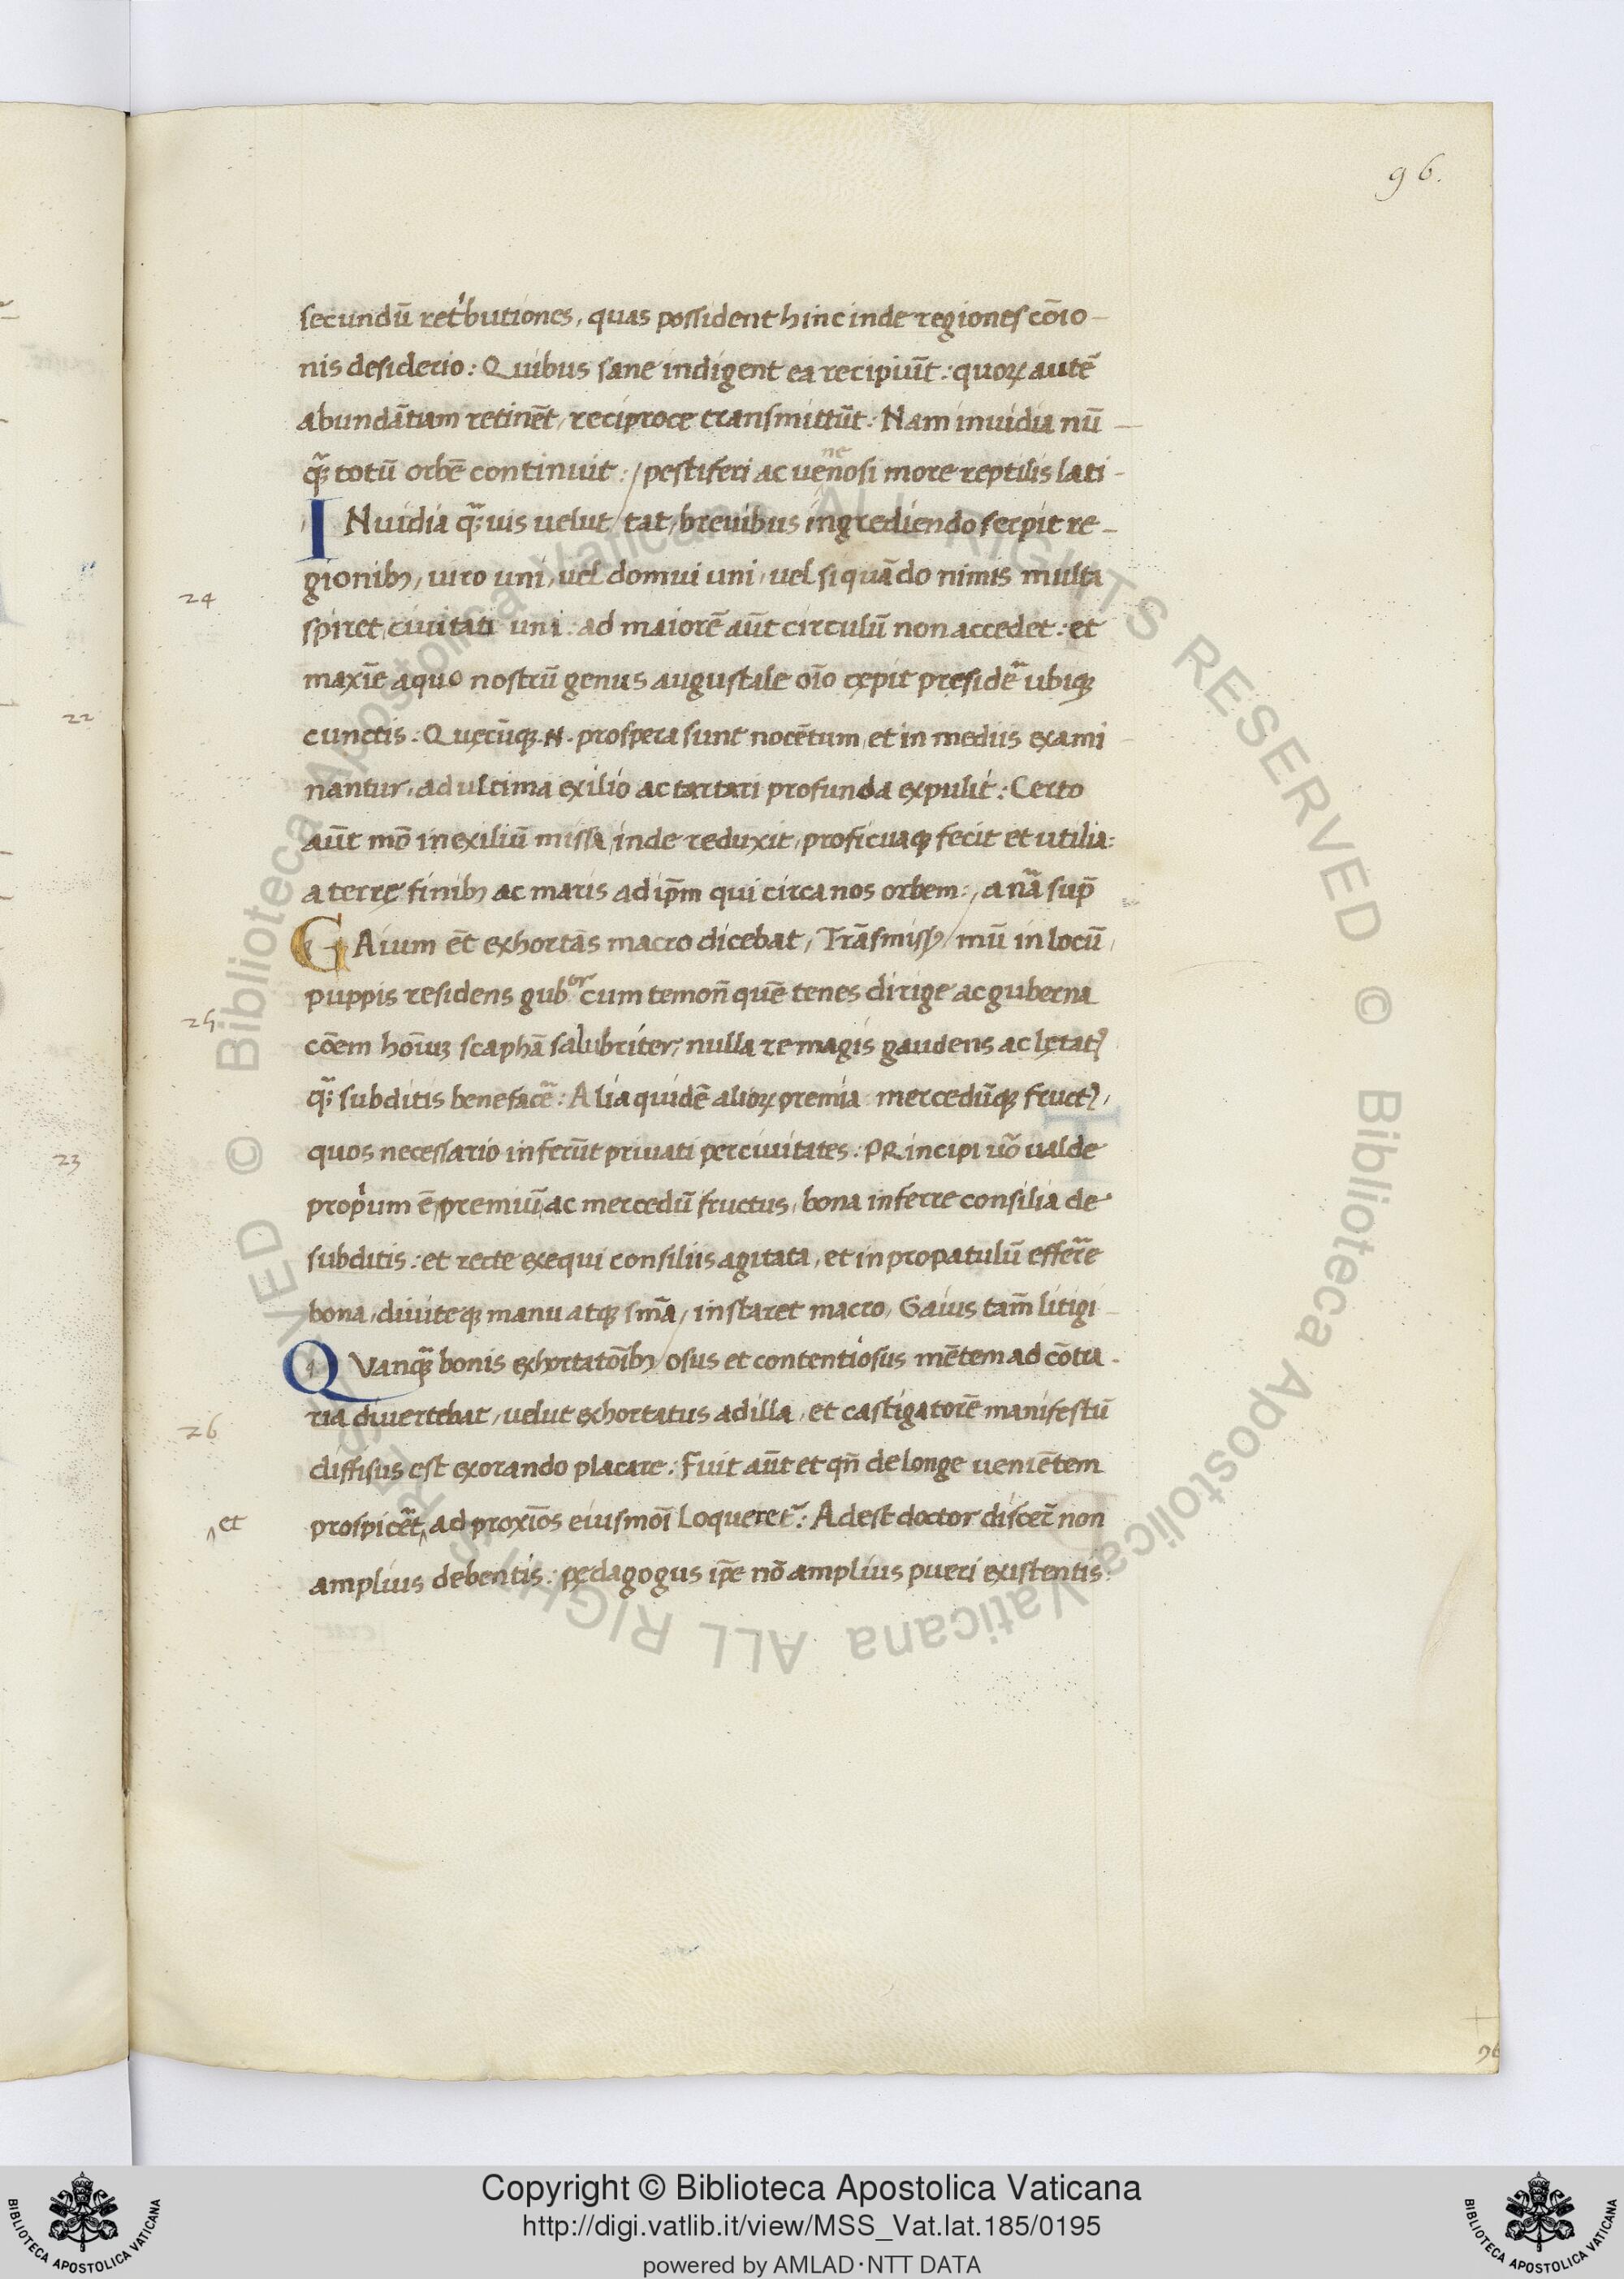 96.
secundū ret'butiones, quas possident hinc inde regiones cōio
nis desiderio: Quibus sane indigent ea recipiūt: quoꝝ autē
abundātiam retinēt, reciproce transmittūt: Nam inuidia nū
q̃ꝫ totū orbē continuit: / pestiferi ac venenosi more reptilis lati
INuidia q̃ꝫuis uelut / tat, breuibus ingrediendo serpit re
gionibꝫ, uiro uni, uel domui uni, uel si quādo nimis multa
24
spiret, ciuitati uni: ad maiorē aūt circulū non accedet: et
maxīe a quo nostrū genus augustale oīo cępit presidẽ ubiqꝫ
cunctis: Quęcūqꝫ .N. prospera sunt nocētum, et in mediis exami
nantur, ad ultima exilio ac tartari profunda expulit: Certo
aūt mō in exiliū missa, inde reduxit, proficuaqꝫ fecit et utilia:
a terrę finibꝫ ac maris ad ip̄m qui circa nos orbem: / a nr̃a sup̄
GAium ēt exhortās macro dicebat, Trāsmissꝰ / mū in locū,
puppis residens gub^or cum temoñ quē tenes dirige ac guberna
25
cōem hōiuꝫ scaphā salubriter, nulla re magis gaudens ac lętatꝰ
q̃ꝫ subditis benefacẽ: Alia quidē alioꝝ premia mercedūqꝫ fructꝰ,
quos necessario inferūt priuati per ciuitates: PRincipi uō ualde
prop'um ē, premiū, ac mercedū fructus, bona inferre consilia de
subditis: et recte exequi consiliis agitata, et in propatulū effer̃e
bona, diuiteqꝫ manu atqꝫ sn̄īa, / instaret macro, Gaius tam̄ litigi
QVanqꝫ̃ bonis exhortatōibꝫ / osus et contentiosus mētem ad cōtra
ria diuertebat, uelut exhortatus ad illa, et castigatorē manifestū
26
diffisus est exorando placare: Fuit aūt et qn̄ de longe ueniētem
et
prospicẽt, ad proxīos eiusmōi loqueret̃: Adest doctor discer̃ non
amplius debentis: pędagogus ip̄e nō amplius pueri existentis:
22
23
96
Copyright © Biblioteca Apostolica Vaticana
http://digi.vatlib.it/view/MSS_Vat.lat.185/0195
powered by AMLAD·NTT DATA
BIBLIOTECA APOSTOLICA VATICANA
BIBLIOTECA APOSTOLICA VATICANA
© Biblioteca Apostolica Vaticana ALL RIGHTS RESERVED © Biblioteca Apostolica Vaticana ALL RIGHTS RESERVED